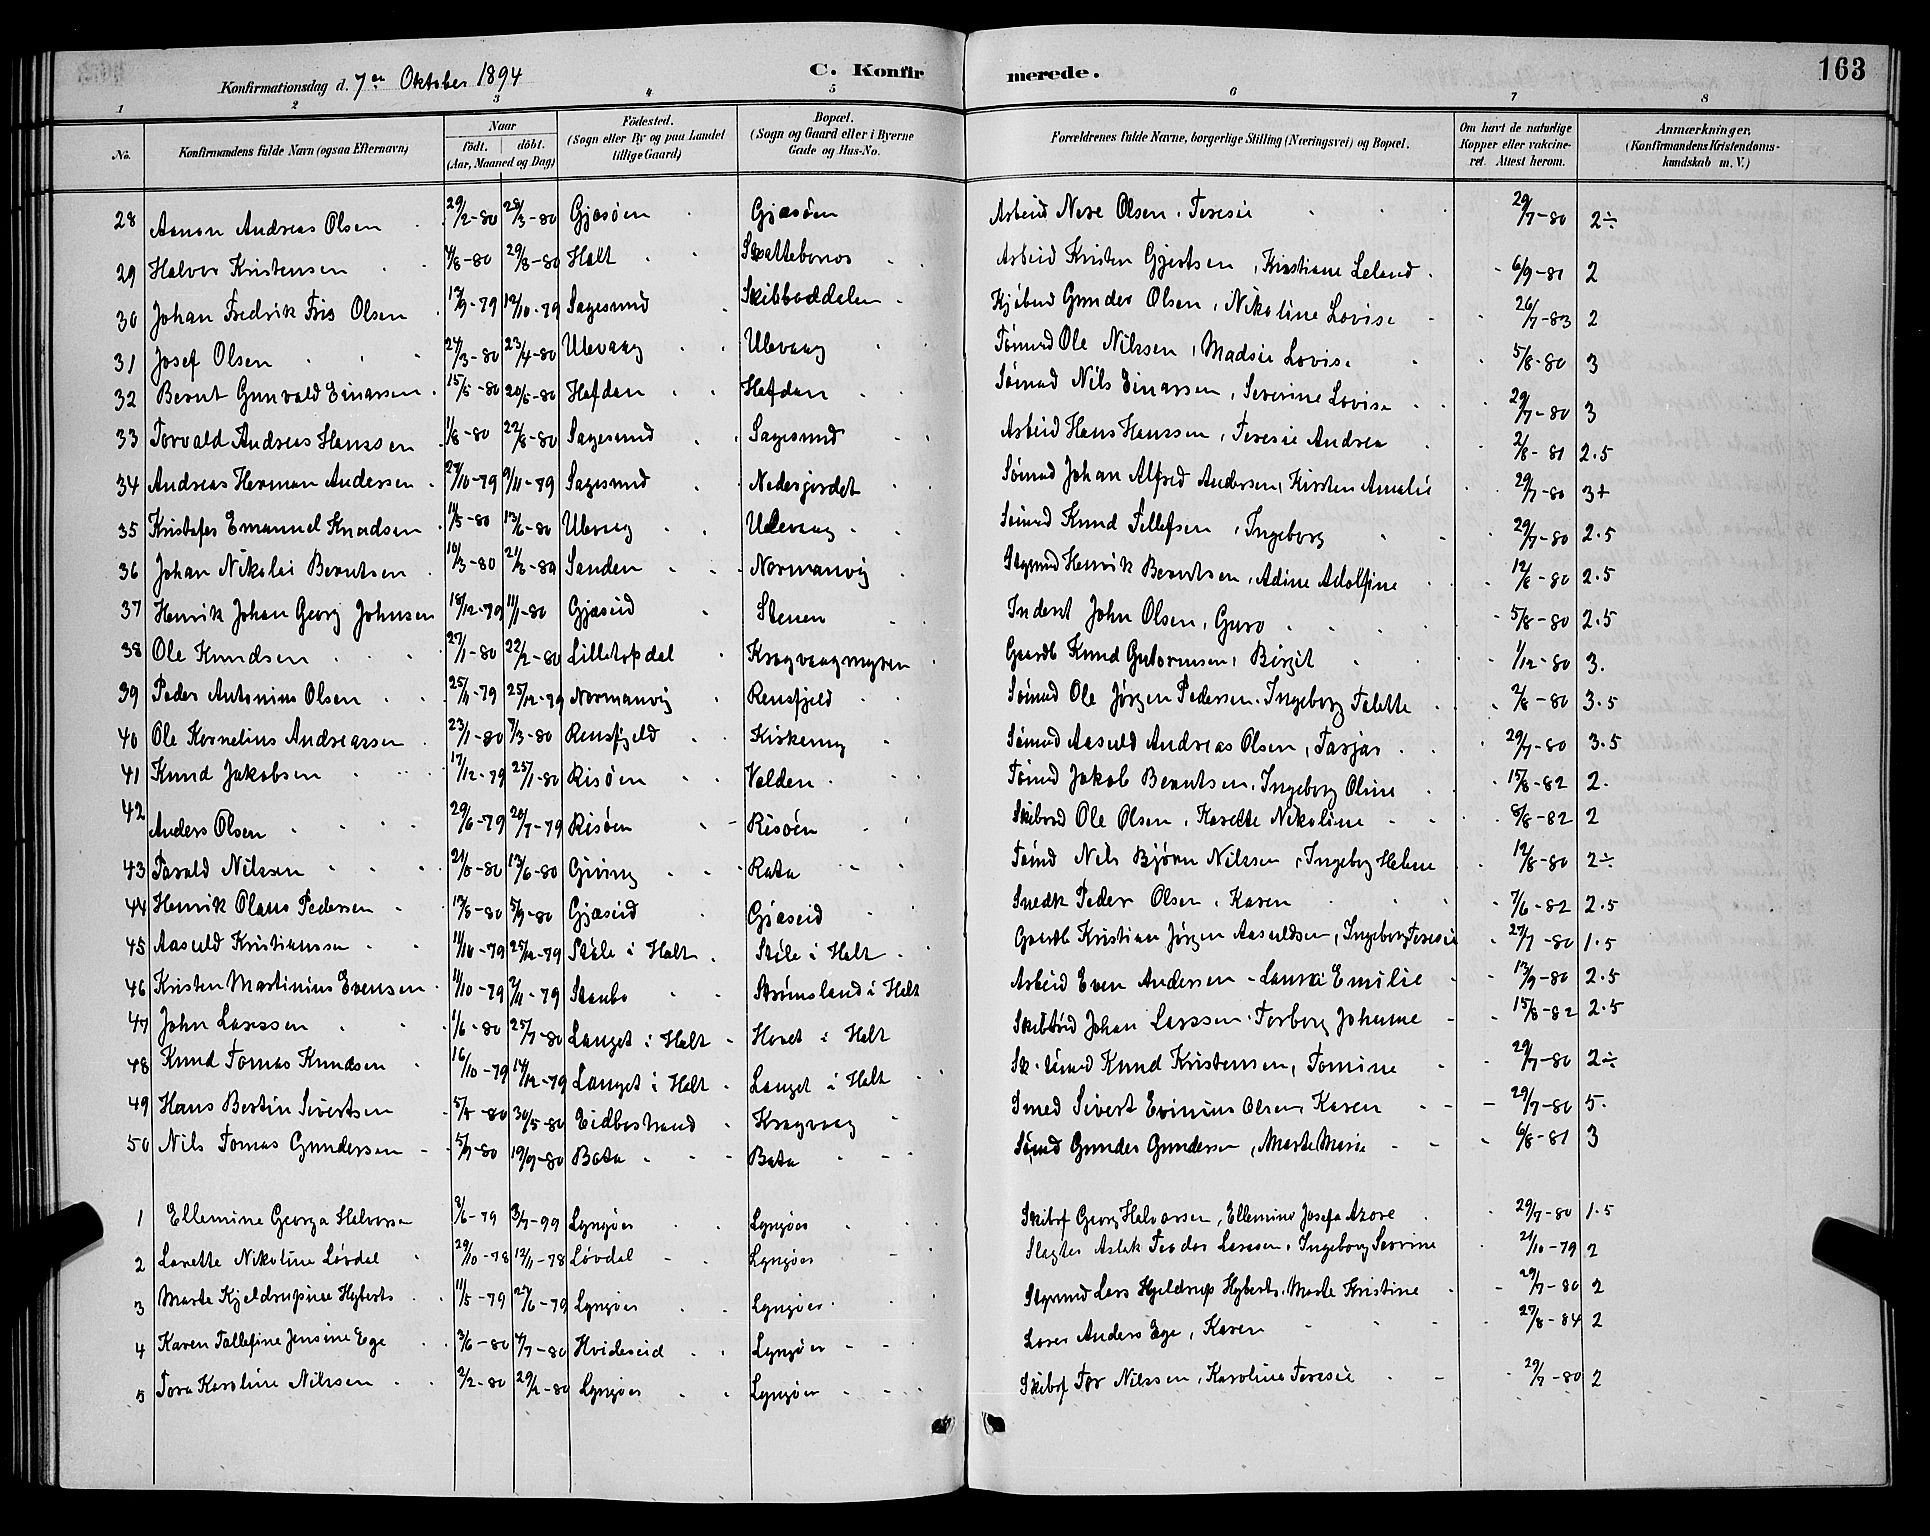 Konfirmationsdag d. 7de Oktober 1894
C. Konfirmerede.
163
1 2 3 4 5 6 7 8
No. Konfirmandens fulde Navn (ogsaa Efternavn) Naar født. døbt. (Aar, Maaned og Dag) Fødested. (Sogn eller By og paa Landet tillige Gaard) Bopæl. (Sogn og Gaard eller i Byerne Gade og Hus-No. Forældrenes fulde Navne, borgerlige Stilling (Næringsvei) og Bopæl. Om havt de naturlige Kopper eller vakcineret. Attest herom. Anmærkninger, (Konfirmandens Kristendomskundskab m. V.)
28 Aanon Andreas Olsen 29/2-80 28/3-80 Gjæsøen Gjæsøen Arbeid Nere Olsen, Teresie 29/7-80 2÷
29 Halvor Kristensen 4/8-80 29/8-80 Holt Skattebonos Arbeid Kristen Gjertsen, Kristiane Leland 6/9-81 2
30 Johan Fredrik Fris Olsen 12/9-79 12/10-79 Sagesund Skibboddalen Kjøbmd Gunder Olsen, Nikoline Lovise 26/7-83 2
31 Josef Olsen 24/3-80 23/4-80 Ulevaag Ulevaag Tømmd Ole Nilssen, Madsie Lovise 5/8-80 3
32 Bernt Gunvald Einarsen 15/5-80 20/5-80 Hafdan Hafdan Sømmd Nils Einarsen, Severine Lovise 29/7-80 3
33 Torvald Andreas Hanssen 1/8-80 22/8-80 Sagesund Sagesund Arbeid Hans Hanssen, Teresie Andrea 2/8-81 2.5
34 Andreas Herman Andersen 27/10-79 9/11-79 Sagesund Nedesjordet Sømmd Johan Alfred Andersen, Kirsten Amalie 29/7-80 3+
35 Kristofer Emanuel Knudsen 11/5-80 13/6-80 Ulevaag Ulevaag Sømmd Knud Tellefsen, Ingeborg 29/7-80 2.5
36 Johan Nikolai Berntsen 10/3-80 21/3-80 Sanden Normanvig Stymnd Henrik Berntsen, Adine Adolfine 12/8-80 2.5
37 Henrik Johan Georg Johnsen 18/12-79 11/1-80 Gjæseid Stenen Inderst John Olsen, Guro 5/8-80 2.5
38 Ole Knudsen 27/1-80 22/2-80 Lilletopdal Kragvaagmyren Gaardb Knud Gutormsen, Birgit 1/12-80 3.
39 Peder Antonius Olsen 25/11-79 25/12-79 Normanvig Rensfjeld Sømmd Ole Jørgen Pedersen, Ingeborg Talette 2/8-80 3.5
40 Ole Kornelius Andreassen 23/1-80 7/3-80 Rensfjeld Kirkemy Sømmd Aasuld Andreas Olsen, Tarjær 29/7-80 3.5
41 Knud Jakobsen 17/12-79 25/1-80 Risøen Valden Tømd Jakob Berntsen, Ingeborg Oline 15/8-82 2.
42 Anders Olsen 29/6-79 20/7-79 Risøen Risøen Skibsrd Ole Olsen, Karette Nikoline 8/8-82 2
43 Tarald Nilssen 21/5-80 13/6-80 Giving Rota Tømd Nils Bjørn Nilssen, Ingeborg Helene 12/8-80 2÷
44 Henrik Olaus Pedersen 13/8-80 5/9-80 Gjæseid Gjæseid Snedk Peder Olsen, Karen 7/6-82 2.5
45 Aasuld Kristianssen 11/10-79 25/12-79 Støle i Holt Støle i Holt Gaardb Kristian Jørgen Aasuldsen, Ingeborg Teresie 27/7-80 1.5
46 Kristen Martinius Evensen 11/10-79 2/11-79 Staubo Strømsland i Holt Arbeid Even Andersen - Laura Emilie 13/9-80 2.5
47 John Larssen 1/6-80 25/7-80 Langet i Holt Hovet i Holt Skibtørd Johan Larssen, Torborg Johanne 15/8-82 2.5
48 Knud Tomas Knudsen 16/10-79 14/12-79 Langet i Holt Langet i Holt Sk.tømd Knud Kristensen, Tomine 29/7-80 2÷
49 Hans Bertin Sivertsen 5/4-80 30/5-80 Eidbostrand Kragvaag Smed Sivert Evinius Olsen, Karen 29/7-80 5.
50 Nils Tomas Gundersen 5/9-80 19/9-80 Bota Bota Sømd Gunder Gundersen, Marte Marie 6/8-81 3
1 Ellemine Georga Halvorsen 8/6-79 3/7-99 Lyngøer Lyngøer Skibsf Georg Halvorsen, Ellemine Josefa Azore 29/7-80 1.5
2 Lanette Nikoline Løvdal 29/10-78 12/11-78 Løvdal Lyngøer Slagter Aslak Teodor Larssen, Ingeborg Serrine 21/10-79 2
3 Marte Kjeldrupine Hyberts 11/5-79 27/6-79 Lyngøer Lyngøer Stymnd Lars Hjeldrup Hyberts, Marte Kristine 29/7-80 2
4 Karen Tallefine Jensine Ege 3/6-80 4/7-80 Hvideseid Lyngøer Loser Anders Ege, Karen 27/8-84 2
5 Tora Karoline Nilssen 2/2-80 29/2-80 Lyngøer Lyngøer Skibsf Tor Nilssen, Karoline Teresie 29/7-80 2